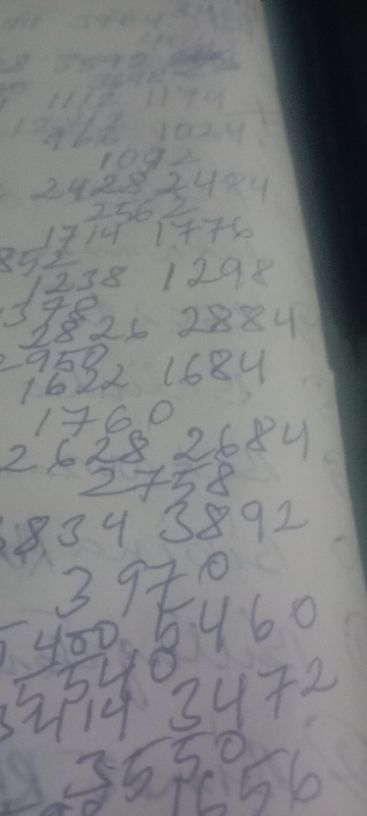 1112 1174
962 1024
1092
2428 2484
2562
1714 1776
852
1238 1298
1378
2826 2884
2950
1622 1684
1760
2628 2684
2758
3834 3892
3970
5400 5460
5540
3414 3472
3550
1656